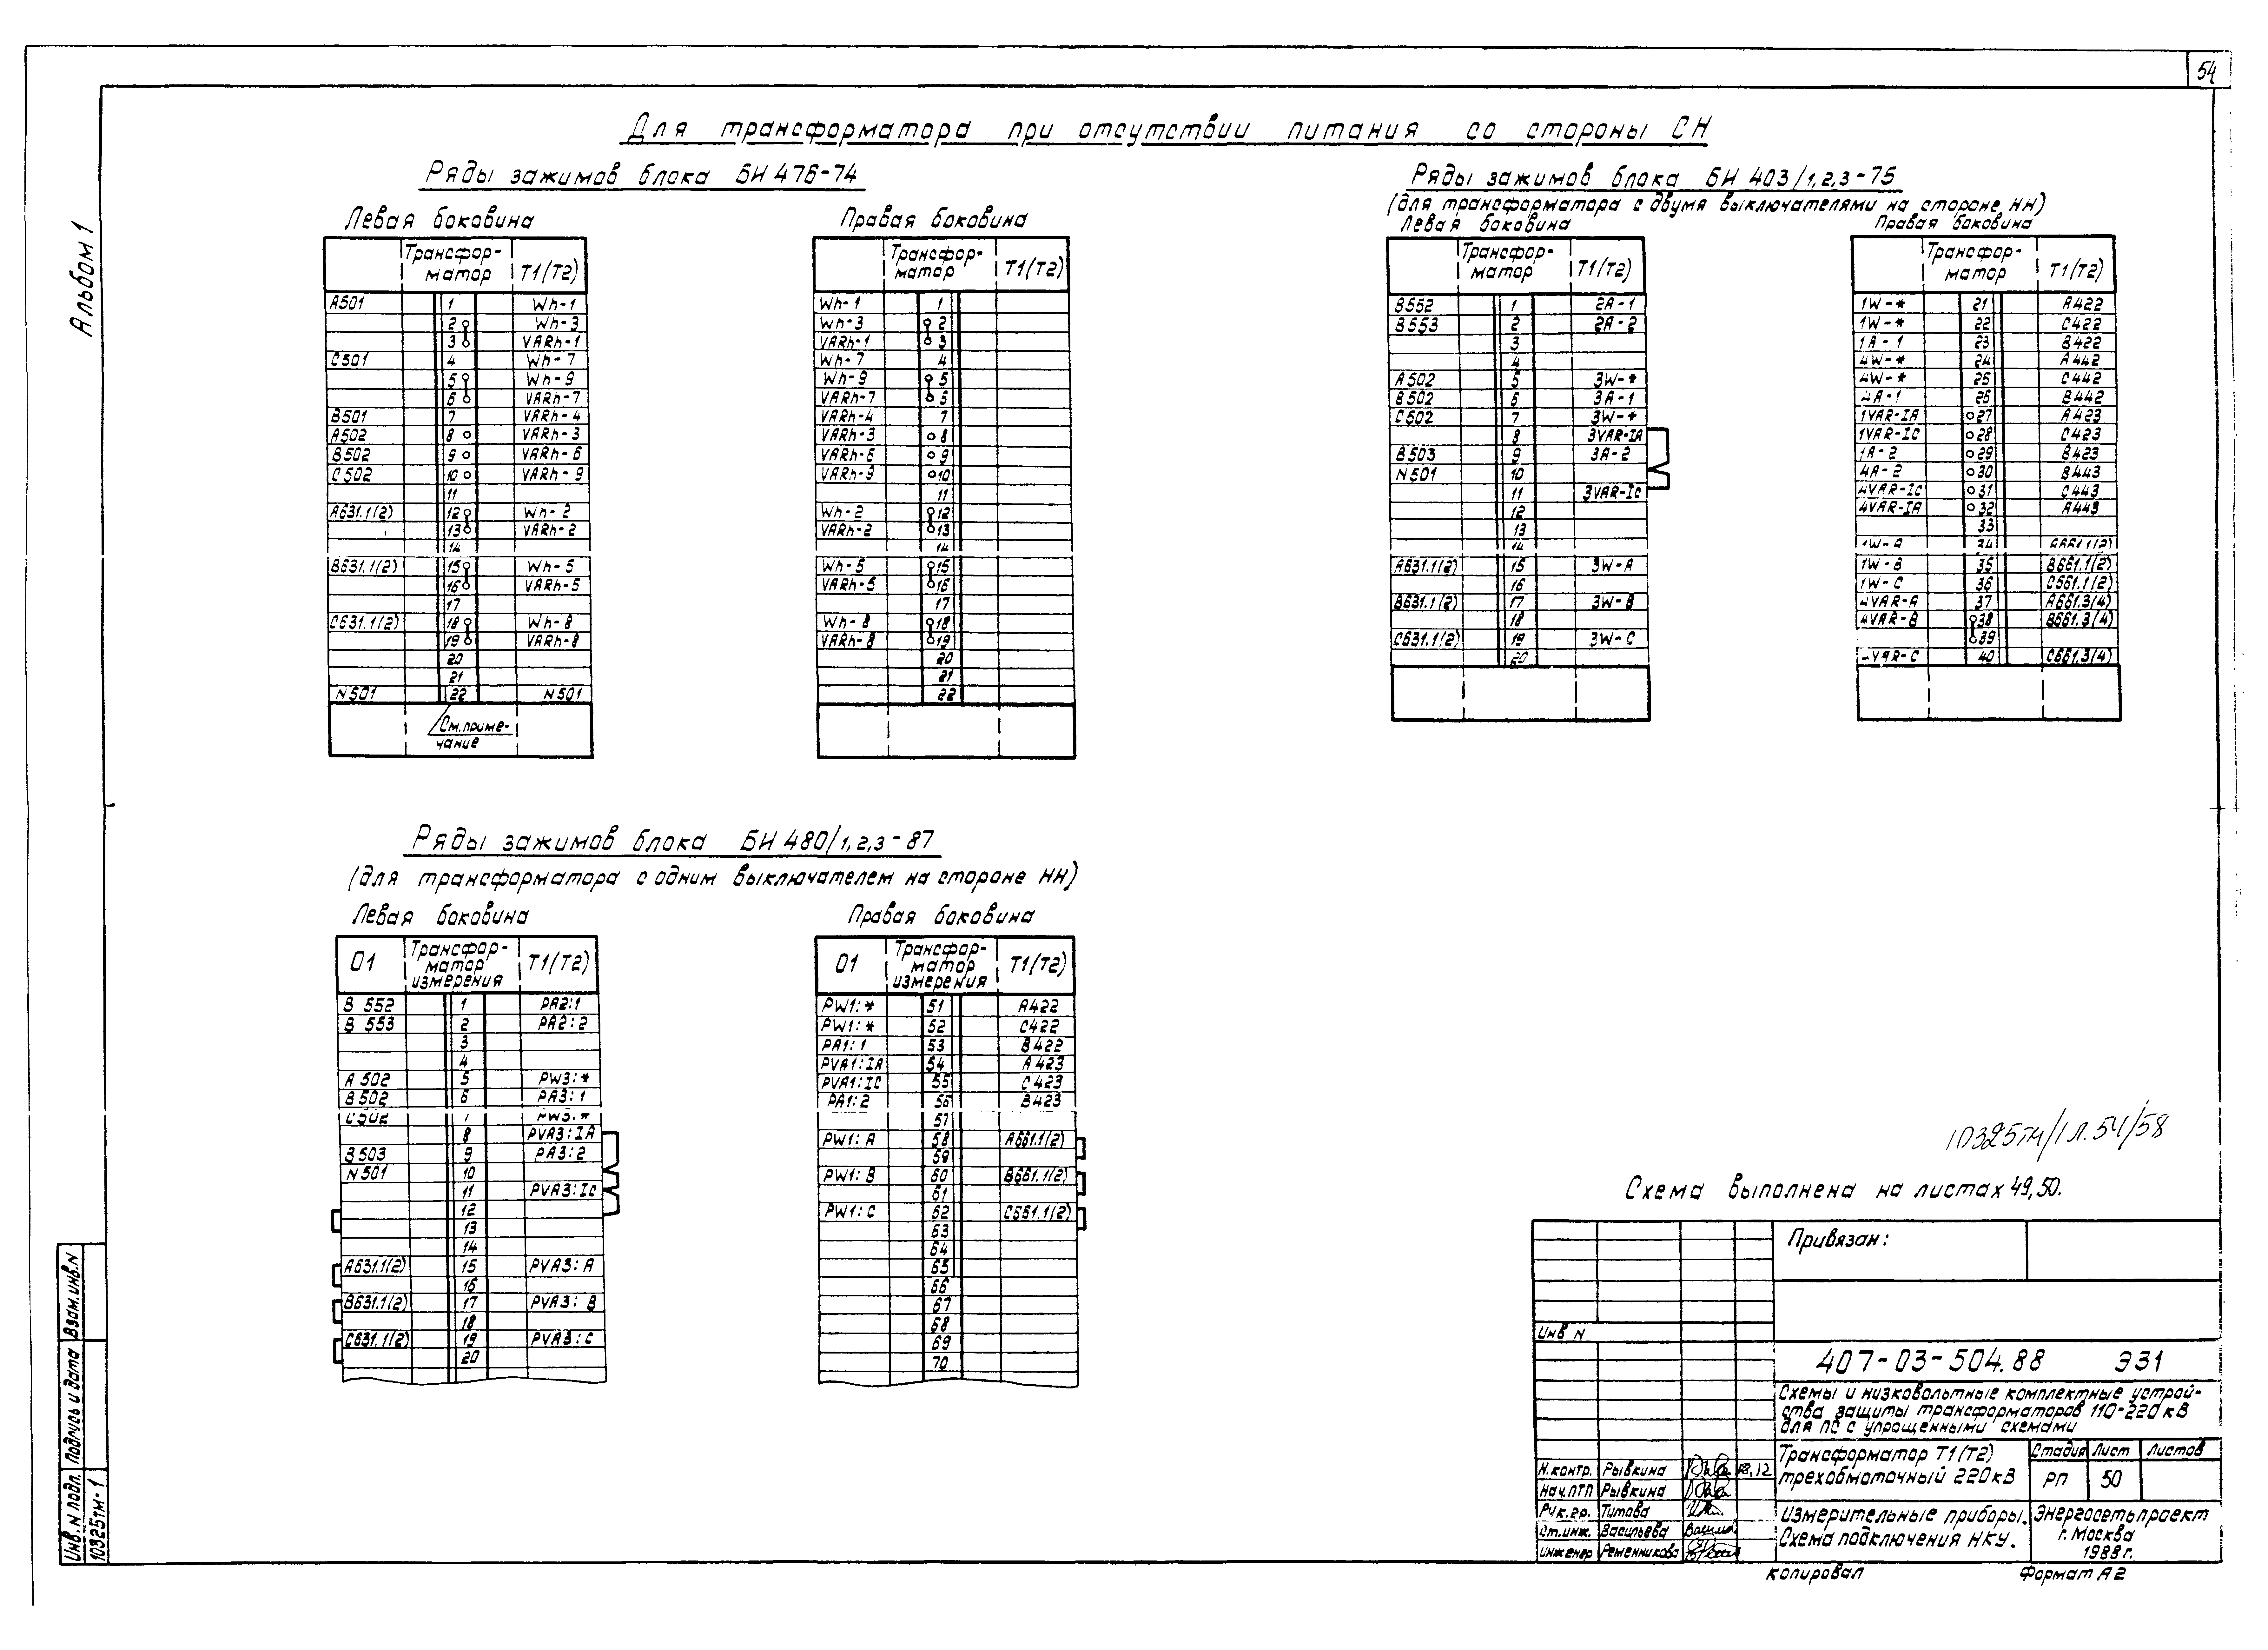 54
Альбом 1
Для трансформатора при отсутствии питания со стороны СН
Ряды зажимов блока БИ 476-74
Левая боковина
Трансфор-матор Т1(Т2)
А501 1 Wh-1
2 Wh-3
3 VARh-1
С501 4 Wh-7
5 Wh-9
6 VARh-7
В501 7 VARh-4
А502 8 VARh-3
В502 9 VARh-6
С502 10 VARh-9
11
А631.1(2) 12 Wh-2
13 VARh-2
14
В631.1(2) 15 Wh-5
16 VARh-5
17
С631.1(2) 18 Wh-8
19 VARh-8
20
21
N501 22 N501
См.приме-
чание
Правая боковина
Трансфор-матор Т1(Т2)
Wh-1 1
Wh-3 2
VARh-1 3
Wh-7 4
Wh-9 5
VARh-7 6
VARh-4 7
VARh-3 8
VARh-6 9
VARh-9 10
11
Wh-2 12
VARh-2 13
14
Wh-5 15
VARh-5 16
17
Wh-8 18
VARh-8 19
20
21
22
Ряды зажимов блока БИ 403/1,2,3-75
(для трансформатора с двумя выключателями на стороне НН)
Левая боковина
Трансфор-матор Т1(Т2)
В552 1 2А-1
В553 2 2А-2
3
4
А502 5 3W-*
В502 6 3А-1
С502 7 3W-*
8 3VAR-IA
В503 9 3А-2
N501 10
11 3VAR-Ic
12
13
14
А631.1(2) 15 3W-А
16
В631.1(2) 17 3W-В
18
С631.1(2) 19 3W-С
20
Правая боковина
Трансфор-матор Т1(Т2)
1W-* 21 А422
1W-* 22 С422
1А-1 23 В422
4W-* 24 А442
4W-* 25 С442
4А-1 26 В442
1VAR-IA 27 А423
1VAR-IC 28 С423
1А-2 29 В423
4А-2 30 В443
4VAR-IC 31 С443
4VAR-IA 32 А443
33
1W-А 34 А661.1(2)
1W-В 35 В661.1(2)
1W-С 36 С661.1(2)
4VAR-А 37 А661.3(4)
4VAR-В 38 В661.3(4)
39
4VAR-С 40 С661.3(4)
Ряды зажимов блока БИ 480/1,2,3-87
(для трансформатора с одним выключателем на стороне НН)
Левая боковина
01 Трансфор-матор измерения Т1(Т2)
В 552 1 РА2:1
В 553 2 РА2:2
3
4
А 502 5 PW3:*
В 502 6 РА3:1
С 502 7 PW3:*
8 PVA3:IA
В 503 9 РА3:2
N 501 10
11 PVA3:Ic
12
13
14
А631.1(2) 15 PVA3:А
16
В631.1(2) 17 PVA3:В
18
С631.1(2) 19 PVA3:С
20
Правая боковина
01 Трансфор-матор измерения Т1(Т2)
PW1:* 51 А422
PW1:* 52 С422
РА1:1 53 В422
PVA1:IA 54 А423
PVA1:IC 55 С423
РА1:2 56 В423
57
PW1:А 58 А661.1(2)
59
PW1:В 60 В661.1(2)
61
PW1:С 62 С661.1(2)
63
64
65
66
67
68
69
70
10325тм/1 л.54/58
Схема выполнена на листах 49,50.
Привязан:
Инв N
407-03-504.88 ЭЗ1
Схемы и низковольтные комплектные устрой-
ства защиты трансформаторов 110-220 кВ
для ПС с упрощенными схемами
Трансформатор Т1(Т2)
трехобмоточный 220кВ
Стадия Лист Листов
РП 50
Н.контр. Рывкина
Нач.ПТП Рывкина
Рук.гр. Титова
Ст.инж. Васильева
Инженер Ременникова
Измерительные приборы.
Схема подключения НКУ.
Энергосетьпроект
г.Москва
1988 г.
Копировал Формат А2
Инв.N подл. Подпись и дата Взам.инв.N
10325тм-1